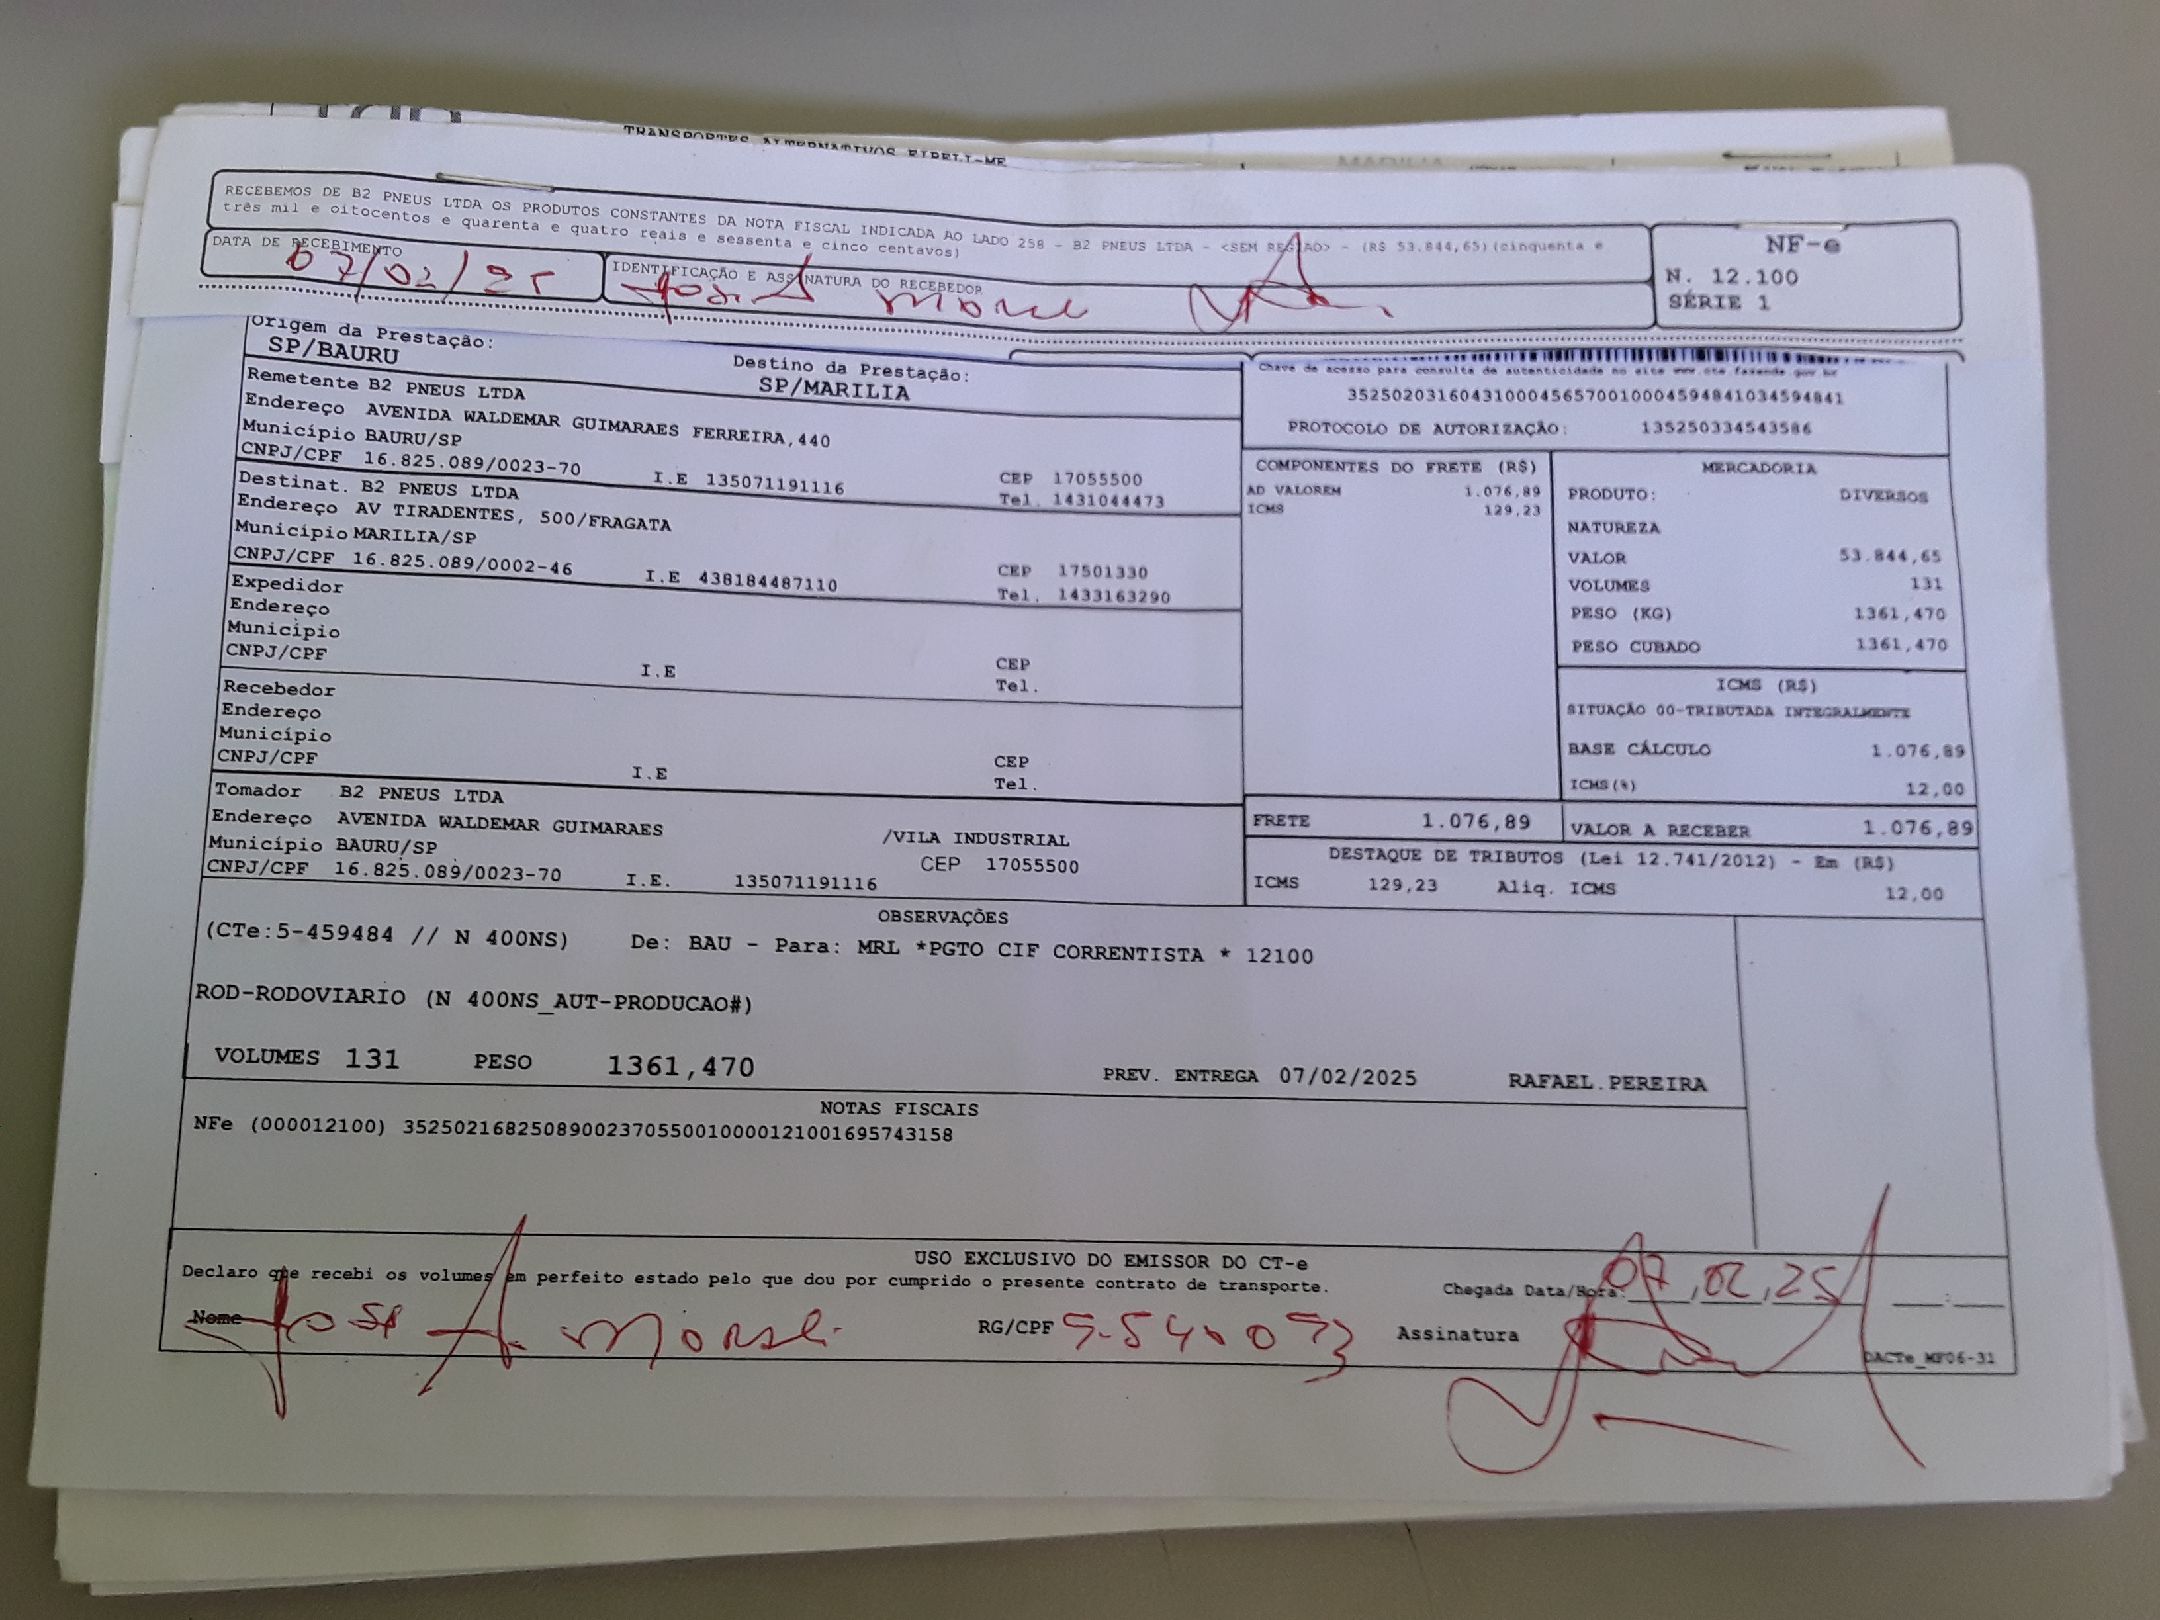 TRANSPORTES ALTERNATIVOS EIRELI-ME
RECEBEMOS DE B2 PNEUS LTDA OS PRODUTOS CONSTANTES DA NOTA FISCAL INDICADA AO LADO 258 - B2 PNEUS LTDA - <SEM REGIAO> - (R$ 53.844,65)(cinquenta e
três mil e oitocentos e quarenta e quatro reais e sessenta e cinco centavos)
NF-e
N. 12.100
SÉRIE 1
DATA DE RECEBIMENTO
07/02/25
IDENTIFICAÇÃO E ASSINATURA DO RECEBEDOR
Origem da Prestação:
SP/BAURU
Destino da Prestação:
SP/MARILIA
Remetente B2 PNEUS LTDA
Endereço AVENIDA WALDEMAR GUIMARAES FERREIRA,440
Município BAURU/SP
CNPJ/CPF 16.825.089/0023-70 I.E 135071191116
CEP 17055500
Tel. 1431044473
Destinat. B2 PNEUS LTDA
Endereço AV TIRADENTES, 500/FRAGATA
Município MARILIA/SP
CNPJ/CPF 16.825.089/0002-46 I.E 438184487110
CEP 17501330
Tel. 1433163290
Expedidor
Endereço
Município
CNPJ/CPF I.E
CEP
Tel.
Recebedor
Endereço
Município
CNPJ/CPF I.E
CEP
Tel.
Tomador B2 PNEUS LTDA
Endereço AVENIDA WALDEMAR GUIMARAES /VILA INDUSTRIAL
Município BAURU/SP CEP 17055500
CNPJ/CPF 16.825.089/0023-70 I.E. 135071191116
Chave de acesso para consulta de autenticidade no site www.cte.fazenda.gov.br
35250203160431000456570010004594841034594841
PROTOCOLO DE AUTORIZAÇÃO: 135250334543586
COMPONENTES DO FRETE (R$)
AD VALOREM 1.076,89
ICMS 129,23
MERCADORIA
PRODUTO: DIVERSOS
NATUREZA
VALOR 53.844,65
VOLUMES 131
PESO (KG) 1361,470
PESO CUBADO 1361,470
ICMS (R$)
SITUAÇÃO 00-TRIBUTADA INTEGRALMENTE
BASE CÁLCULO 1.076,89
ICMS(%) 12,00
FRETE 1.076,89
VALOR A RECEBER 1.076,89
DESTAQUE DE TRIBUTOS (Lei 12.741/2012) - Em (R$)
ICMS 129,23 Aliq. ICMS 12,00
OBSERVAÇÕES
(CTe:5-459484 // N 400NS) De: BAU - Para: MRL *PGTO CIF CORRENTISTA * 12100
ROD-RODOVIARIO (N 400NS_AUT-PRODUCAO#)
VOLUMES 131 PESO 1361,470 PREV. ENTREGA 07/02/2025 RAFAEL.PEREIRA
NOTAS FISCAIS
NFe (000012100) 35250216825089002370550010000121001695743158
USO EXCLUSIVO DO EMISSOR DO CT-e
Declaro que recebi os volumes em perfeito estado pelo que dou por cumprido o presente contrato de transporte.
Chegada Data/Hora: 07,02,25 __:__
Nome RG/CPF Assinatura
DACTe_MF06-31